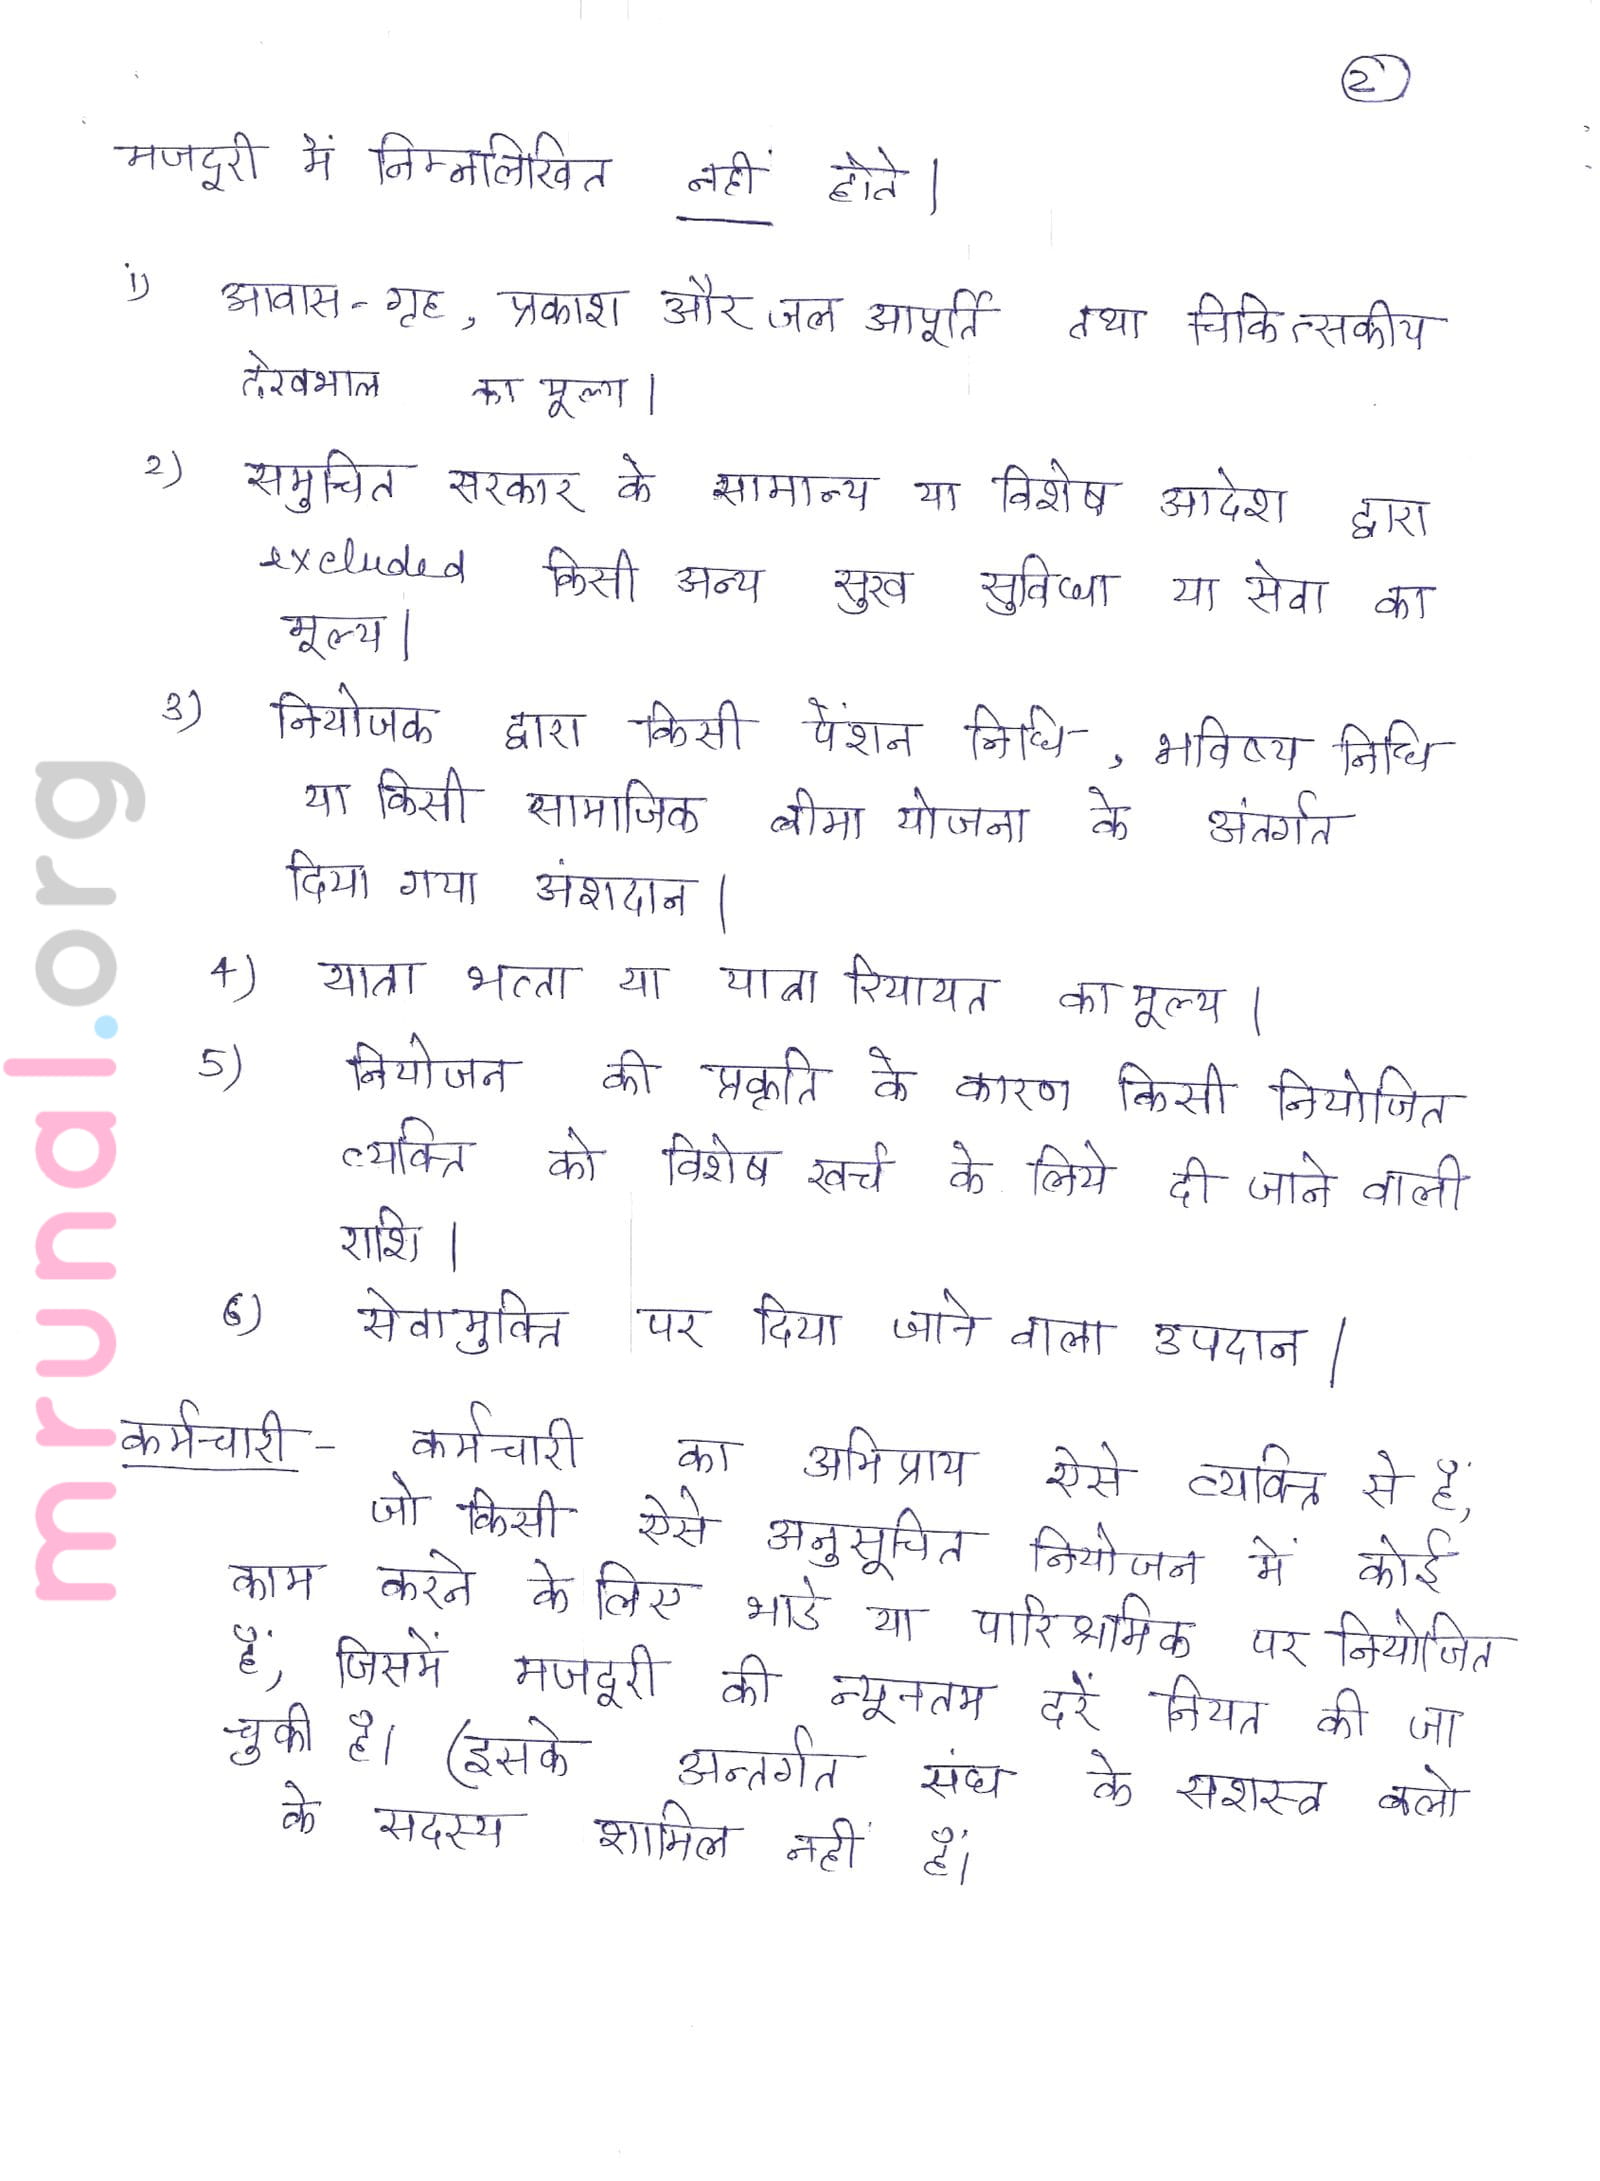 2
मजदूरी में निम्नलिखित नहीं होते।
1) आवास-गृह, प्रकाश और जल आपूर्ति तथा चिकित्सकीय
देखभाल का मूल्य।
2) समुचित सरकार के सामान्य या विशेष आदेश द्वारा
excluded किसी अन्य सुख सुविधा या सेवा का
मूल्य।
3) नियोजक द्वारा किसी पेंशन निधि, भविष्य निधि
या किसी सामाजिक बीमा योजना के अंतर्गत
दिया गया अंशदान।
4) यात्रा भत्ता या यात्रा रियायत का मूल्य।
5) नियोजन की प्रकृति के कारण किसी नियोजित
व्यक्ति को विशेष खर्च के लिये दी जाने वाली
राशि।
6) सेवामुक्ति पर दिया जाने वाला उपदान।
कर्मचारी - कर्मचारी का अभिप्राय ऐसे व्यक्ति से हैं,
जो किसी ऐसे अनुसूचित नियोजन में कोई
काम करने के लिए भाडे या पारिश्रमिक पर नियोजित
हैं, जिसमें मजदूरी की न्यूनतम दरें नियत की जा
चुकी है। (इसके अन्तर्गत संघ के सशस्त्र बलो
के सदस्य शामिल नहीं हैं।
mrunal.org